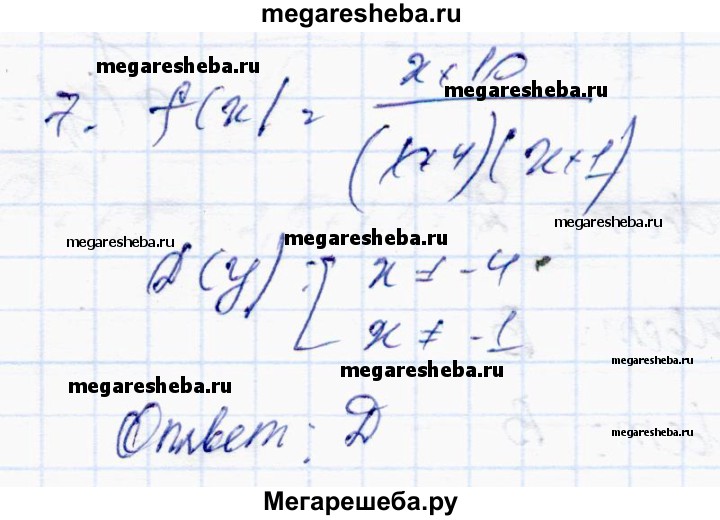 megaresheba.ru
megaresheba.ru
7. f(x) = x+10 / (x+4)(x+1)
megaresheba.ru
megaresheba.ru
megaresheba.ru
megaresheba.ru
D(y) = [ x ≠ -4
x ≠ -1
megaresheba.ru
megaresheba.ru
megaresheba.ru
Ответ: D
megaresheba.ru
Мегарешеба.ру